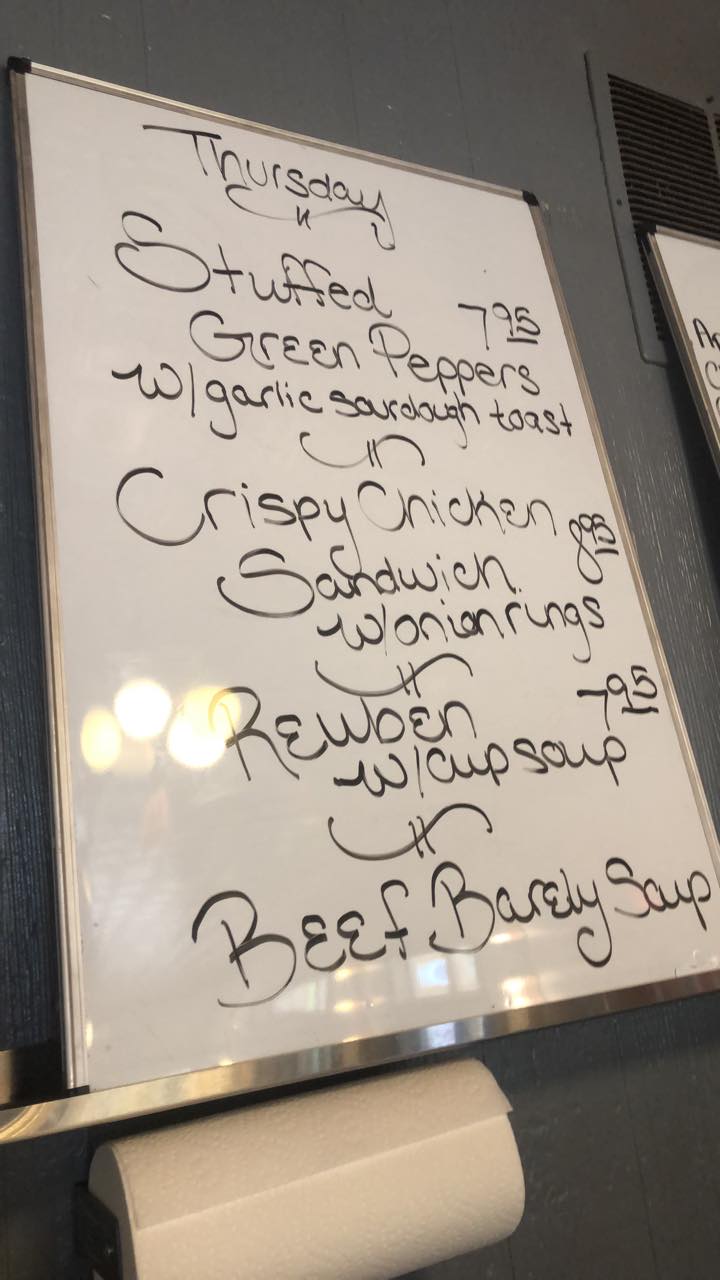 Thursday
Stuffed
Green Peppers 7.95
w/garlic sourdough toast
Crispy Chicken
Sandwich 8.95
w/onion rings
Reuben 7.95
w/cup soup
Beef Barely Soup